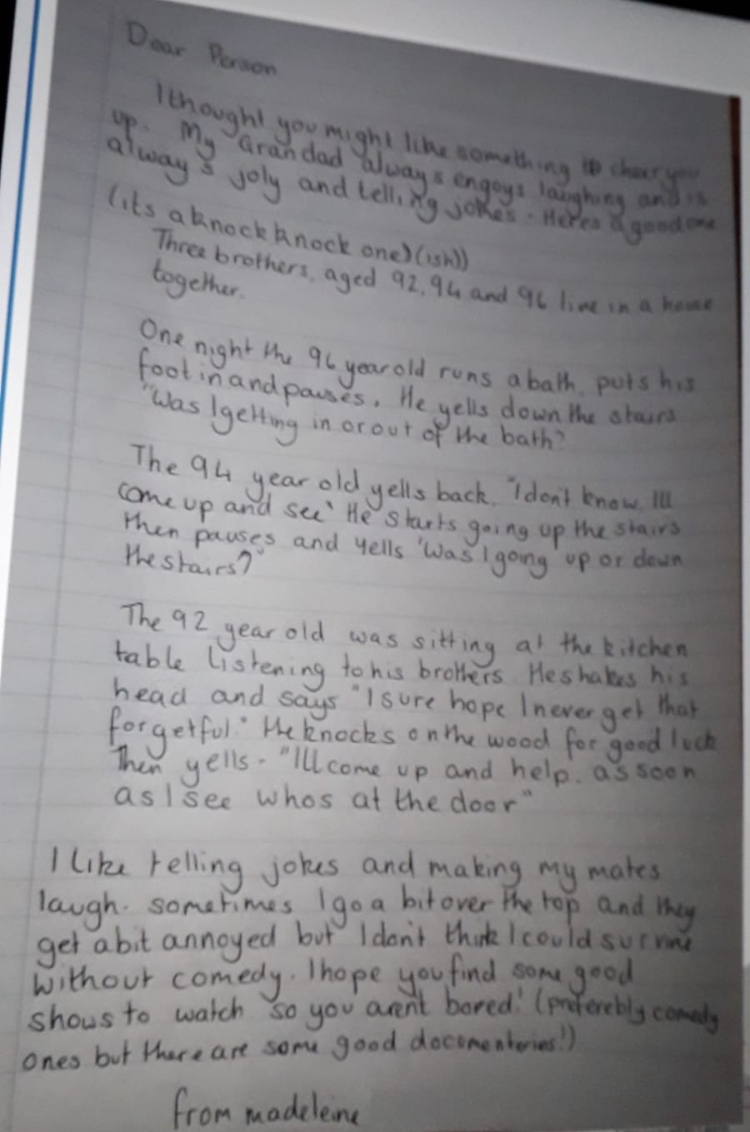 Dear Person
I thought you might like something to cheer you
up. My Grandad always engoys laughing and is
always joly and telling jokes. Heres a good one
(its a knock knock one)(ish))
Three brothers, aged 92, 94 and 96 live in a house
together.
One night the 96 year old runs a bath, puts his
foot in and pauses. He yells down the stairs
"Was I getting in or out of the bath?
The 94 year old yells back, "I don't know Ill
come up and see' He starts going up the stairs
then pauses and yells 'Was I going up or down
the stairs?"
The 92 year old was sitting at the kitchen
table listening to his brothers He shakes his
head and says "I sure hope I never get that
forgetful." He knocks on the wood for good luck
Then yells - "Ill come up and help. as soon
as I see whos at the door"
I like telling jokes and making my mates
laugh. sometimes I go a bit over the top and they
get a bit annoyed but I don't think I could survive
without comedy. I hope you find some good
shows to watch so you arent bored! (preferebly comedy
ones but there are some good documenteries!)
from madeleine